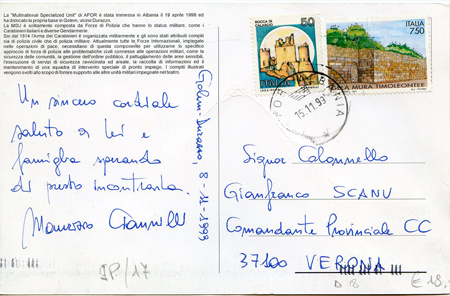 La "Multinational Specialized Unit" di AFOR è stata immessa in Albania il 19 aprile 1999 ed
ha dislocato la propria base in Golem, vicino Durazzo.
La MSU è solitamente composta da Forze di Polizia che hanno lo status militare, come i
Carabinieri italiani e diverse Gendarmerie.
Sei dal 1814 l'Arma dei Carabinieri è organizzata militarmente e gli sono stati attribuiti compiti
sia di polizia civile che di polizia militare. Attualmente tutte le Forze Internazionali, impiegate
nelle operazioni di pace, necessitano di questa componente per utilizzare lo specifico
approccio di forza di polizia alle problematiche civili connesse alle operazioni militari, come la
sicurezza delle comunità, la gestione dell'ordine pubblico, il pattugliamento delle aree sensibili,
l'esecuzione di servizi di sicurezza ravvicinata ed areale, la raccolta di informazioni ed il
mantenimento di una squadra di intervento speciale di pronto impiego. I compiti illustrati
vengono svolti allo scopo di fornire supporto alle altre unità militari impiegate nel teatro.
Un sincero cordiale
saluto a lei e
famiglia sperando
di presto incontrarla.
Golem-Durazzo, 8-11-1999
JP/17
ROCCA DI
CALASCIO
50
ITALIA
750
MURA TIMOLEONTEE
ALBANIA
15.11.99
Signor Colonnello
Gianfranco SCANU
Comandante Provinciale CC
37100 VERONA